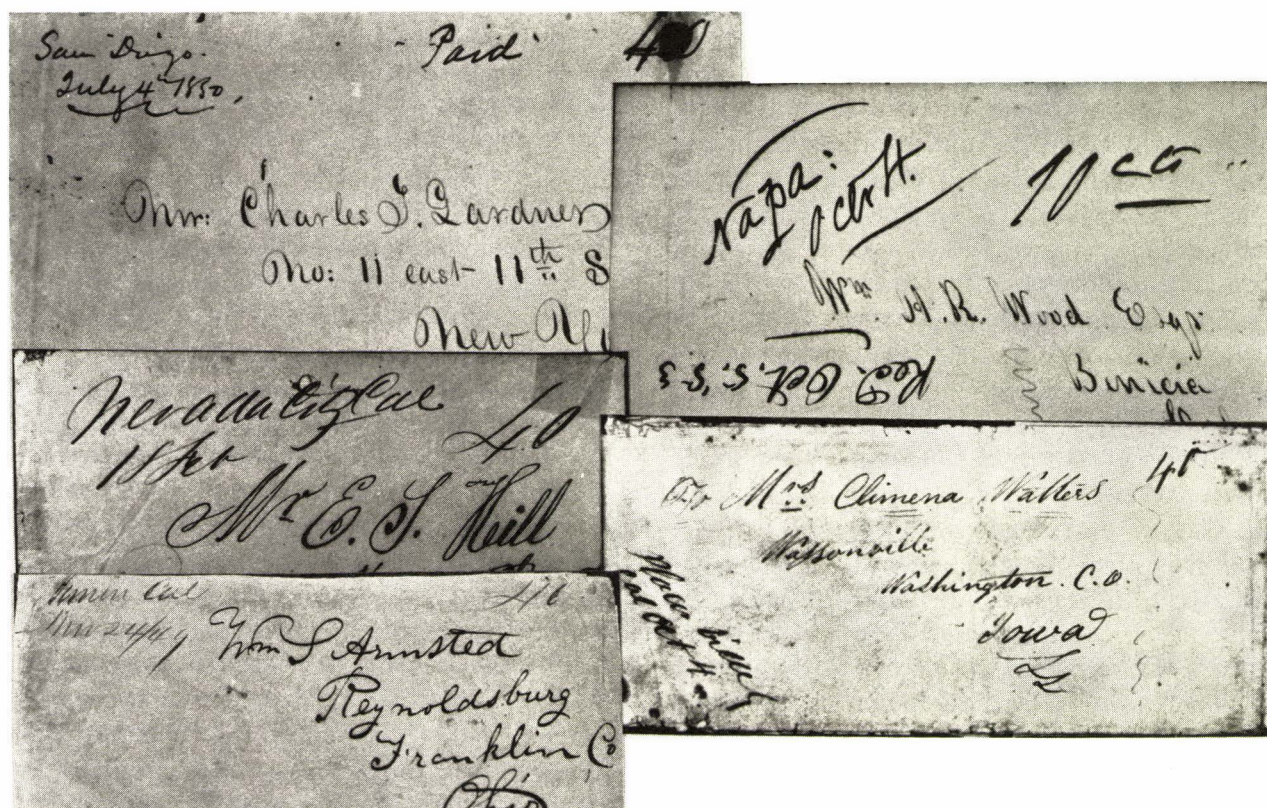 San Diego. Paid 40
July 4th 1850,
Mr: Charles J. Gardner
No: 11 east 11th S
New Yo
Napa:
Octr 4.
10 cts
Wm. H. R. Wood Esqr
Binicia
Recd. Oct. 5, 53
Nevada City Cal 40
18 Feb
Mr E. S. Hill
To Mrs Climena Watters 40
Wassonville
Washington. C.O.
Iowa
Cal Oct 4
Cal 40
Nov 24/49
Wm S Armsted
Reynoldsburg
Franklin Co
Ohio